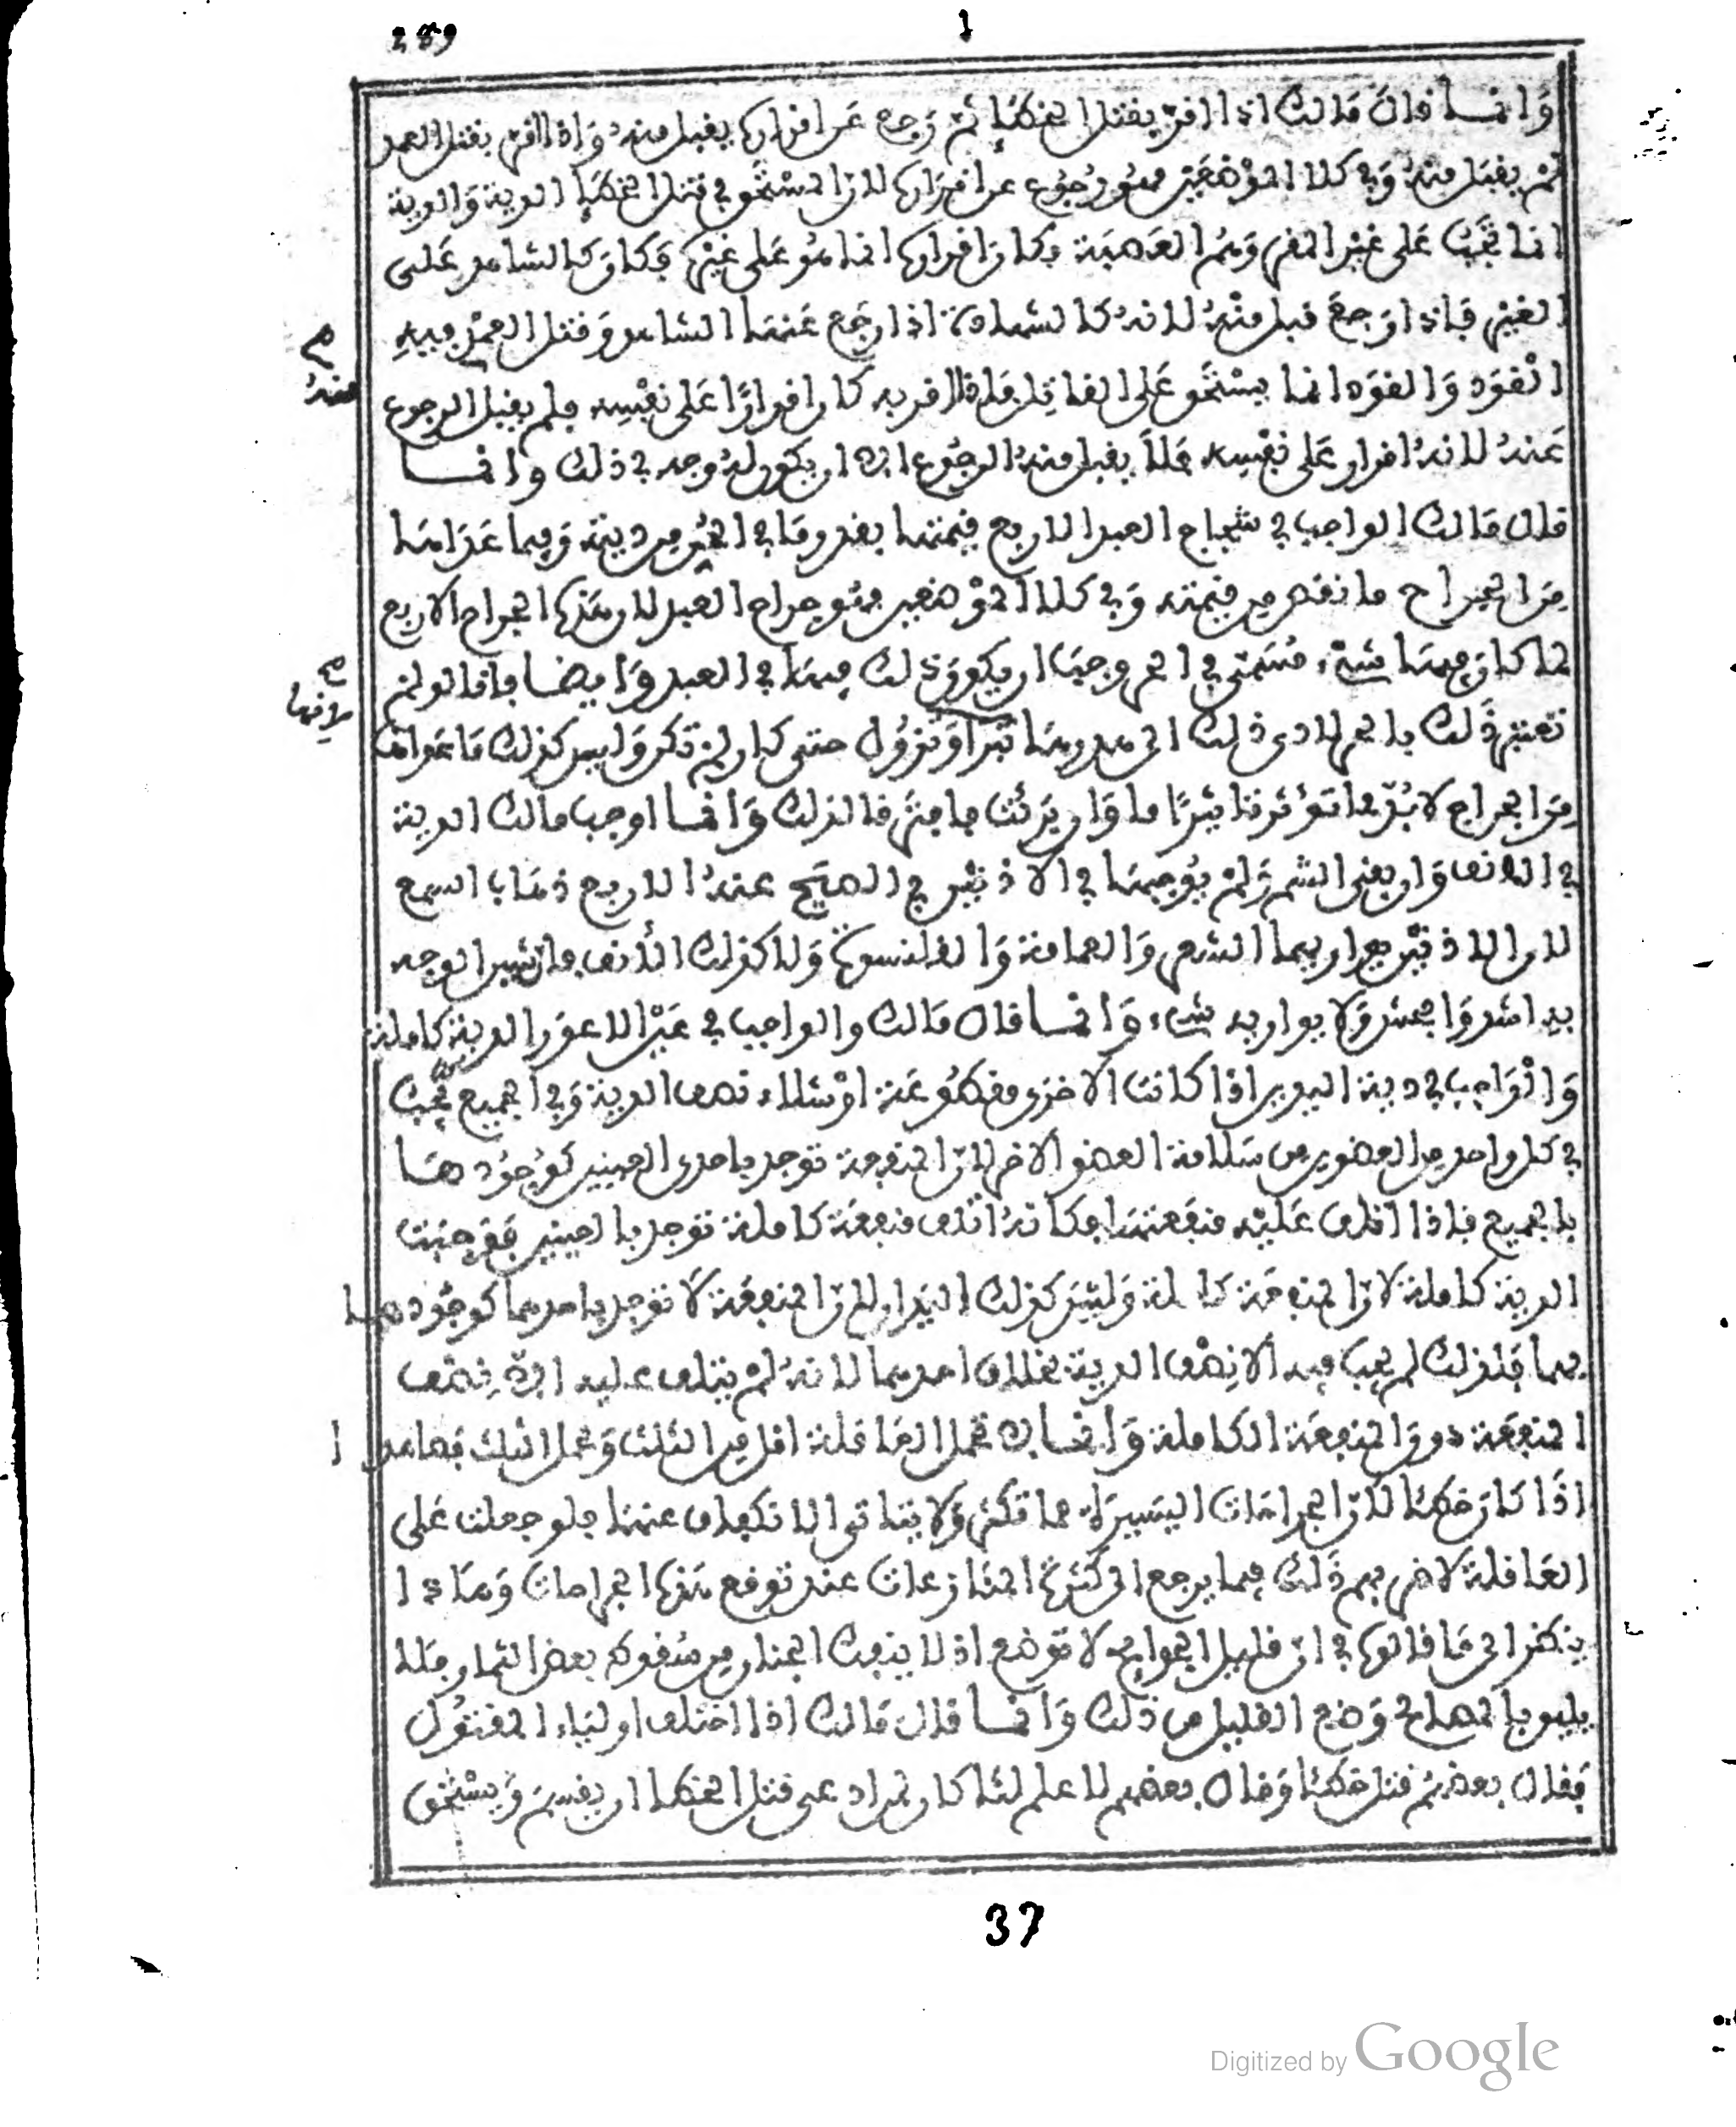 289
وَانما قال مَالك اذا اقرّ بقتل الخطإ ثم رَجع عَن اقراره يقبل منه وَاذا اقر بقتل العمد
لمْ يقبَل منهُ وَفي كلا الموْضعَيْن فهُو رجُوع عن اقرَاره لان المسْتحَق في قتل الخطإ الدية وَالدية
انما تجبُ عَلى غيْر المقر وَهُم العَصَبَة فكان اقراره انما هُو عَلى غيْره فكان كالشاهد عَلى
الغيْر فاذا رَجعَ قبل منْهُ لانهُ كالشهادة اذا رجَع عَنها الشاهد وَقتل العمْد فيهِ
القوَد وَالقوَد انما يسْتحَق عَلى القاتِل فاذا اقر به كان اقرارًا عَلى نفْسِه فلم يقبل الرجوع
عَنهُ لانهُ اقرار عَلى نفْسِه فلا يقبل منهُ الرجُوع الا ان يكون لهُ وجه في ذلك وانما
قال مَالك الواجب في شجاج العبد الاربع قيمتها بقدر مَا في الحُر من ديته وَفيما عَدَاها
مِن الجراح ما نقص من قيمته وَفي كلا الموْضعين فهُو جراح العبد لان هَذه الجراح الاربع
لما كان فيهَا شيْء مُسَمّى في الحر وجبَ ان يكون ذلك فيهَا في العبد وَايضا فانا لو لم
نعتبر ذَلك بالحر لادى ذلك الى هدرها تبرا وَتزوُل حتى كان لم تكن وَليس كذلك مَا عَداها
مِن الجراح لا بُدّ ما تؤثر تاثيرًا ما وَان برَئت فافترقا لذلك وَانما اوجب مالك الدية
في الانف وَان بقى الشم وَلمْ يوُجبهَا في الاذنيْن في الصحيح عندُه الا ربع ذهَاب السمع
لان الاذنيْن يواريهما الشعر وَالعمامة وَالقلنسوة وَلا كذلك الأنف فان شين الوجه
به اشد وَافحش وَلا يواريه شيء وَانما قال مَالك والواجب في عَيْن الاعوَر الدية كاملة
وَالْوَاجب في دية اليدين اذا كانت الاخرَى مقطُوعَة اوْ شلاء نصف الدية وَفي الجميع تجبُ
في كل واحد من العضوين من سَلامة العضو الاخر لان المنفعة توجد باحدى العينين كوُجُودهَا
بالجميع فاذا اتلف عَليْه منفَعتهَا فكانهُ اتلف منفعَة كاملة توجد بالعينين فوَجبَت
الدية كاملة لان المنفعَة كاملة وَليْسَ كذلك اليَدان لان المنفعَة لا توجد باحدهما كوجُودها
بهما فلذلك لم يجب فيه الا نِصْف الدية بخلاف احدهما لانهُ لمْ يتلف عليه الا نِصْف
المنفعَة دون المنفعَة الكاملة وَانما لا تحمل العَاقلة اقل من الثلث وَتحمل الثلث فصاعدا
اذا كان خطئا لان الجراحَات اليَسيرَة مما تكثر وَلا يتاتى الا تكاف عنها فلو جعلت عَلى
العَاقلة لاضر بهم ذَلك فيما يرجع الى كثرة المنازعات عند توقع هَذه الجراحات وَهَذا
ينظر الى مَا قالوه في ان قليل الجوائح لا توضع اذ لا ينفك الجنان من سُقوط بعض الثمار فلا
يليق بالمصالح وَضع القليل من ذلك وَانما قال مَالك اذا اختلف اولياء المقتوُل
فقال بعضهُم قتل خطئا وَقال بعضهم لا علم لنا كان لمن ادعى قتل الخطا ان يقسمَ وَيسْتحق
منهُ
37
Digitized by Google